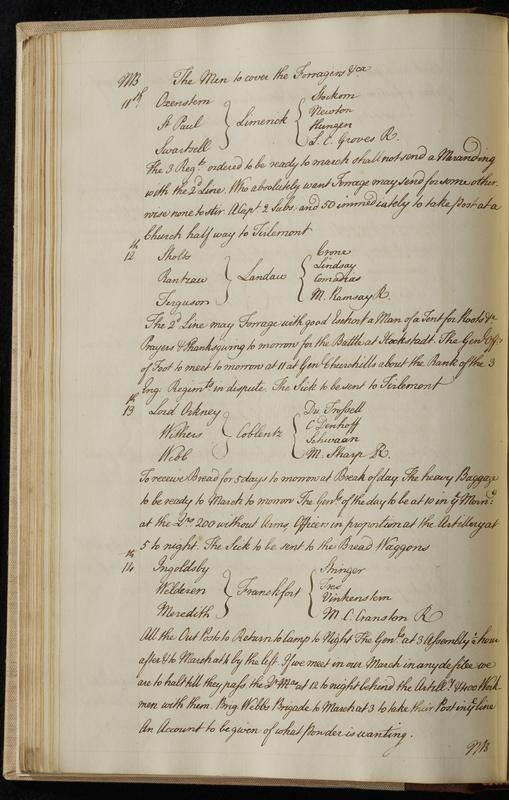 MB The Men to cover the Forragers &ca
11th Oxenstern Stockom
St Paul Limerick Newton
Hungen
Swartsell L. C. Groves R.
the 3 Regts ordered to be ready to march shall not send a Marauding
with the 2d Line, Who absolutely want Forrage may send for some other
wise none to stir. A Capt 2 Subs. and 50 immediately to take Post at a
Church half way to Tirlemont
12th Sholts Crone
Rantzau Landau Lindsay
Ferguson M. Ramsay R.
The 2d Line may Forrage with good Escort a Man of a Tent for Roots &c
Prayers & thanksgiving to morrow for the Battle at Hockstadt. The Genl Offrs
of Foot to meet to morrow at 11 at Genl Churchills about the Rank of the 3
Eng: Regimts in dispute. The Sick to be sent to Tirlemont
13th Lord Orkney Du Trossell
Withers Coblentz C Denhoff
Schwaan
Webb M. Sharp R.
To receive Bread for 5 days to morrow at Break of day The heavy Baggage
to be ready to March to morrow The Genls of the day to be at 10 in ye Morng
at the 200 without Arms, Officers in proportion at the Artillery at
5 to night. The Sick to be sent to the Bread Waggons
14th Ingoldsby Stringer
Welderen Frankfort
Vinkenstein
Meredith M. C. Cranston R
All the Out Posts to Return to Camp to Night The Genle at 3 Assembly ½ hour
after & to March at 4 by the left. If we meet in our March in any defilee we
are to halt till they pass the at 12 to night behind the Artilly & 400 Work
men with them. Brig. Webbs Brigade to March at 3 to take their Post in ye line
An Account to be given of what Powder is wanting.
MB